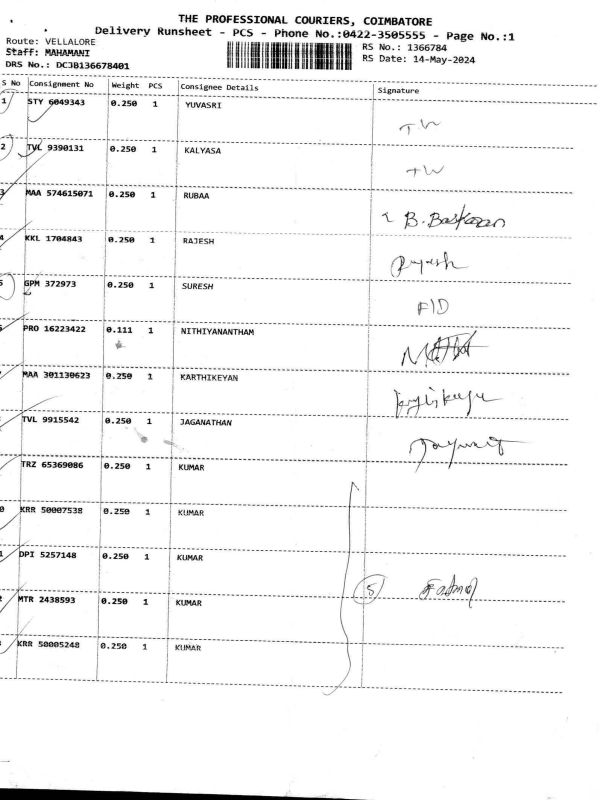 THE PROFESSIONAL COURIERS, COIMBATORE
Delivery Runsheet - PCS - Phone No.:0422-3505555 - Page No.:1
Route: VELLALORE
Staff: MAHAMANI
DRS No.: DCJB136678401
RS No.: 1366784
RS Date: 14-May-2024
S No Consignment No Weight PCS Consignee Details Signature
1 STY 6049343 0.250 1 YUVASRI
2 TVL 9390131 0.250 1 KALYASA
3 MAA 574615071 0.250 1 RUBAA B. Baskaran
4 KKL 1704843 0.250 1 RAJESH
5 GPM 372973 0.250 1 SURESH F/D
PRO 16223422 0.111 1 NITHIYANANTHAM
MAA 301130623 0.250 1 KARTHIKEYAN
TVL 9915542 0.250 1 JAGANATHAN
TRZ 65369086 0.250 1 KUMAR
0 KRR 50007538 0.250 1 KUMAR
1 DPI 5257148 0.250 1 KUMAR 5
2 MTR 2438593 0.250 1 KUMAR
KRR 50005248 0.250 1 KUMAR